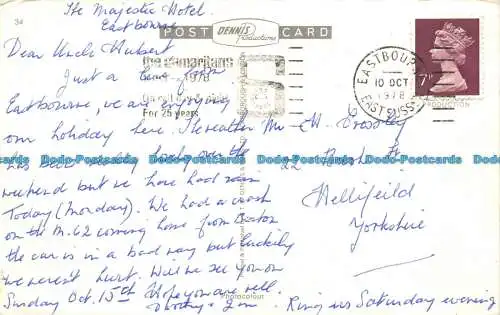 34
The Majestic Hotel.
Eastbourne.
POST CARD
DENNIS
Productions
Dear Uncle Hubert
the samaritans
1978
Just a line from
For 25 years
Eastbourne, we are enjoying
our holiday here. The weather
has been very
weekend but we have had rain
Today (Monday). We had a crash
on the M.62 coming home from
the car is in a bad way but luckily
we werent hurt. Will see you on
Sunday Oct. 15th Hope you are well.
EASTBOURNE
10 OCT
1978
EAST SUSSEX
7P
Mr H. Crossley
22
Hellifeild
Yorkshire
Photocolour
Ring us Saturday evening
Do-do-Postcards Do-do-Postcards Do-do-Postcards